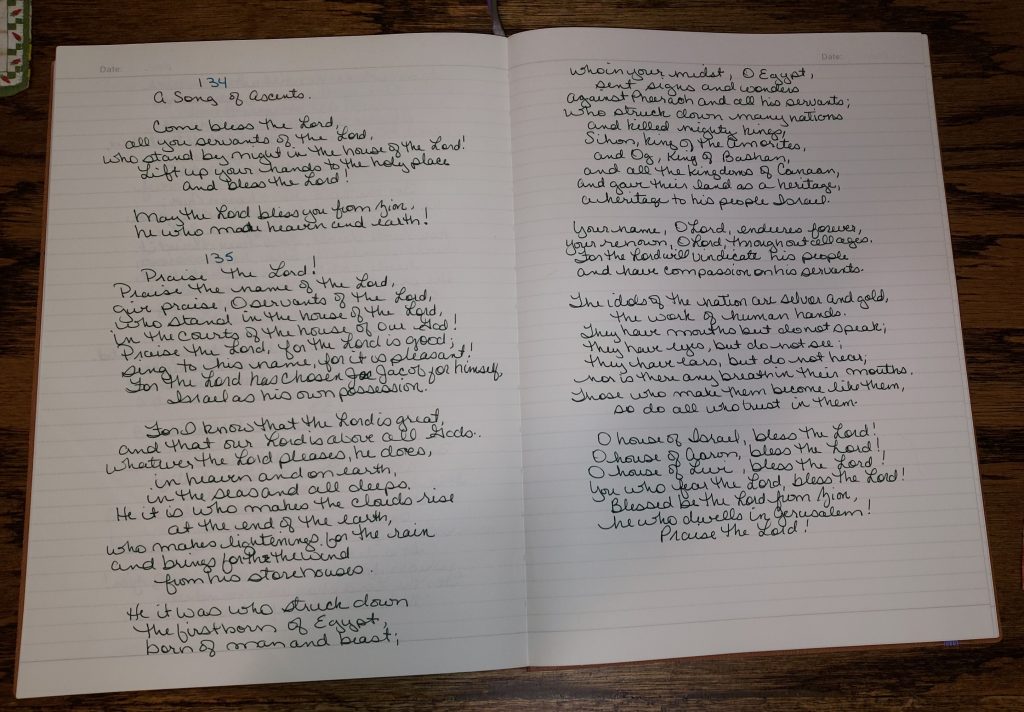 Date:
134
A Song of Ascents.
Come bless the Lord,
all you servants of the Lord,
who stand by night in the house of the Lord!
Lift up your hands to the holy place
and bless the Lord!
May the Lord bless you from Zion,
he who made heaven and earth!
135
Praise the Lord!
Praise the name of the Lord,
give praise, O servants of the Lord,
who stand in the house of the Lord,
in the courts of the house of our God!
Praise the Lord, for the Lord is good;
sing to his name, for it is pleasant!
For the Lord has chosen Jacob for himself,
Israel as his own possession.
For I know that the Lord is great,
and that our Lord is above all Gods.
Whatever the Lord pleases, he does,
in heaven and on earth,
in the seas and all deeps.
He it is who makes the clouds rise
at the end of the earth,
who makes lightenings for the rain
and brings forth the wind
from his storehouses.
He it was who struck down
the firstborn of Egypt,
born of man and beast;
Date:
who in your midst, O Egypt,
sent signs and wonders
against Pharaoh and all his servants;
who struck down many nations
and killed mighty kings,
Sihon, king of the Amorites,
and Og, King of Bashan,
and all the kingdoms of Canaan,
and gave their land as a heritage,
a heritage to his people Israel.
Your name, O Lord, endures forever,
your renown, O Lord, throughout all ages.
For the Lord will vindicate his people
and have compassion on his servants.
The idols of the nation are silver and gold,
the work of human hands.
They have mouths but do not speak;
they have eyes, but do not see;
they have ears, but do not hear;
nor is there any breath in their mouths.
Those who make them become like them,
so do all who trust in them.
O house of Israel, bless the Lord!
O house of Aaron, bless the Lord!
O house of Levi, bless the Lord!
You who fear the Lord, bless the Lord!
Blessed be the Lord from Zion,
he who dwells in Jerusalem!
Praise the Lord!